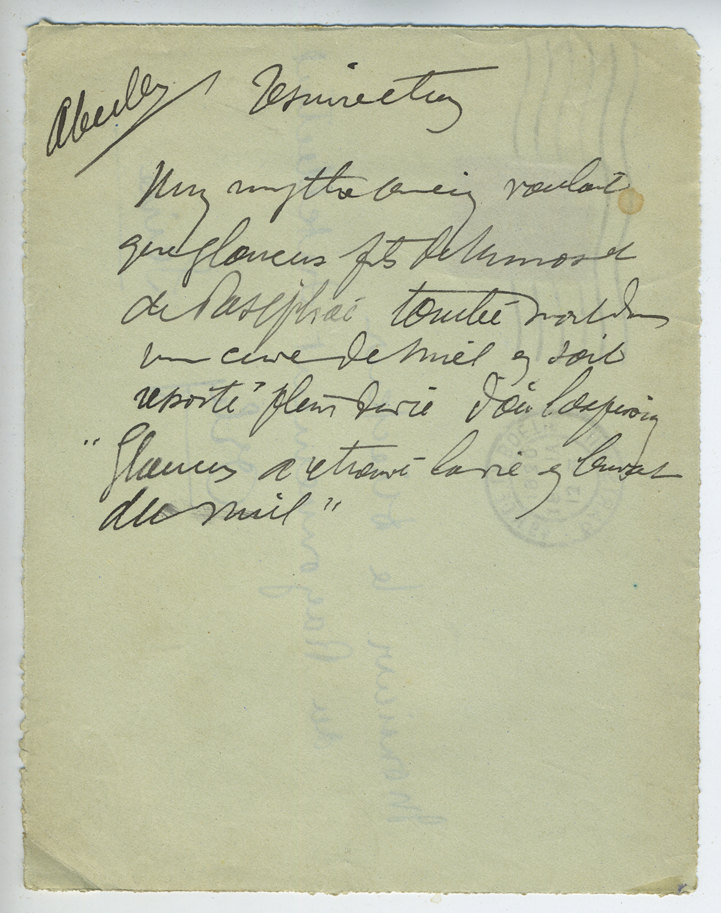 Abeilles / résurrection
Un mythe ancien voulait
que glaucus fils de Minos et
de Pasiphaé tombé mort dans
une cuve de miel en soit
ressorti plein de vie d'où l'expression
"Glaucus a retrouvé la vie en buvant
du miel"